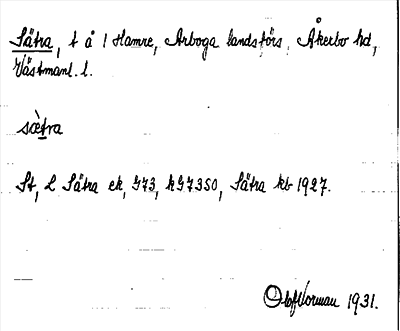 Sätra, t å 1 Hamre, Arboga landsförs. Åkerbo hd,
Västmanl. l.
sœ̀tra
St, L Sätra ek, G73, hG7350, Sätra kb 1927.
Olof Norman 1931.